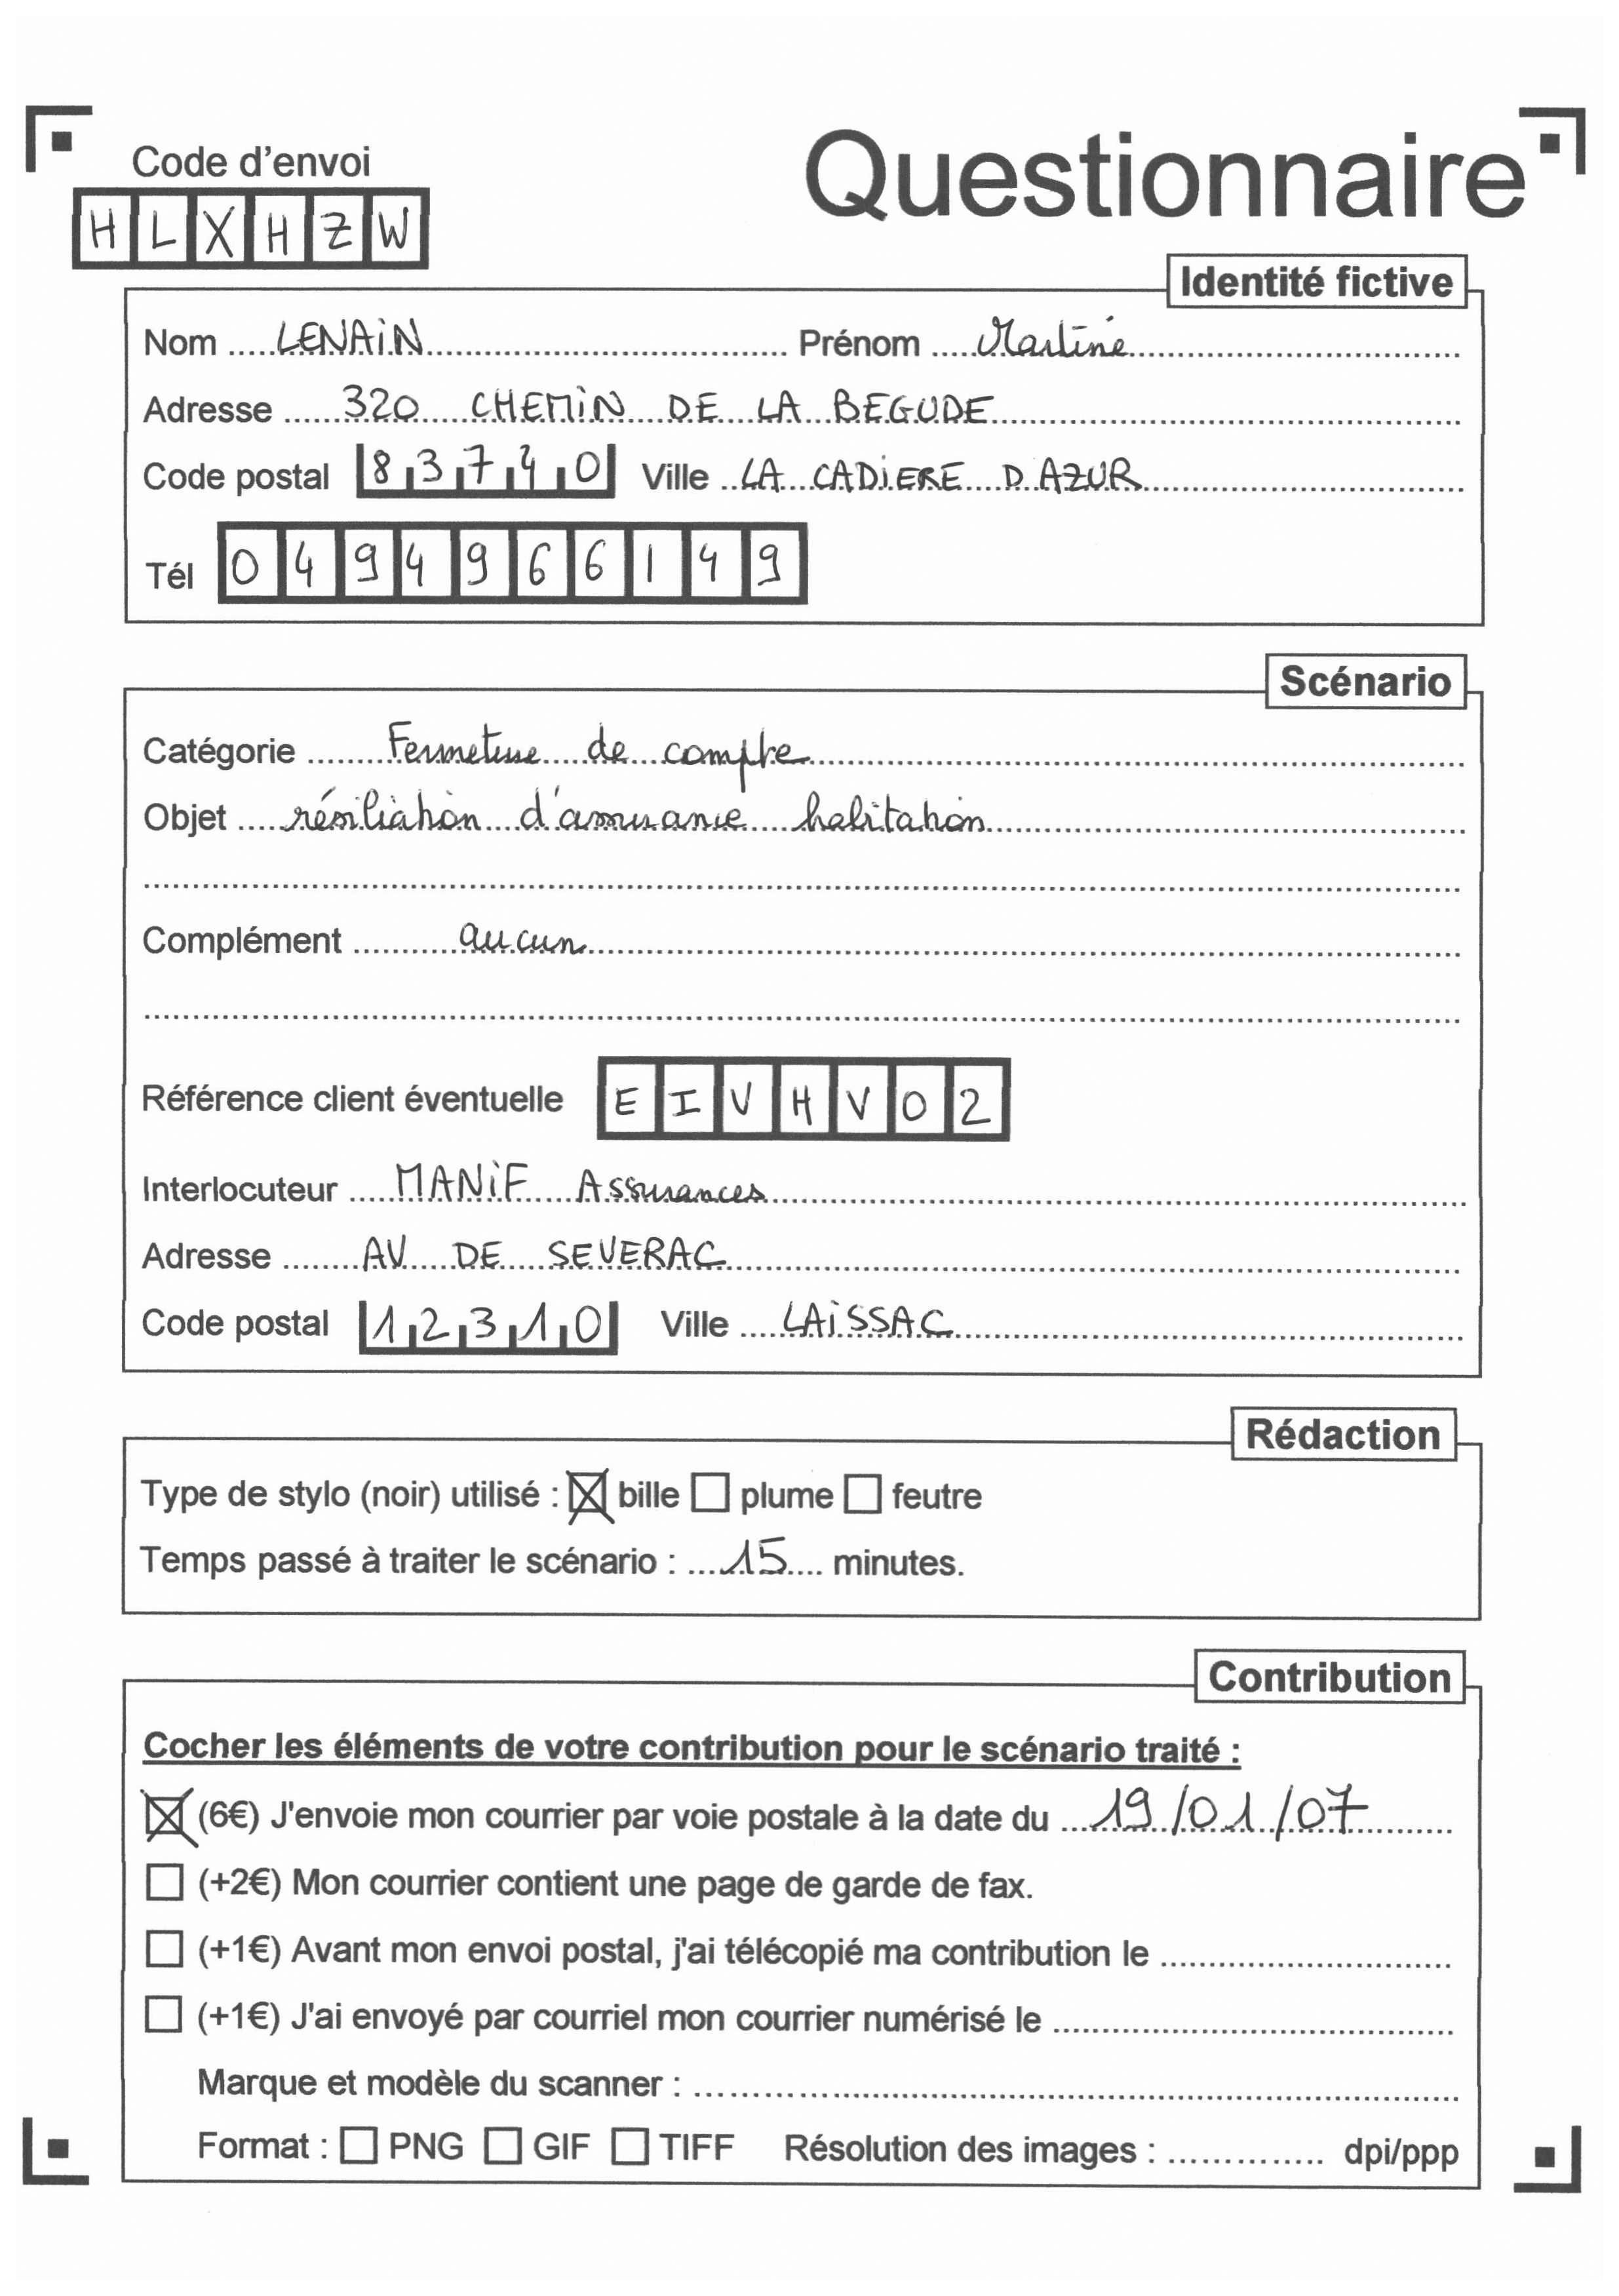 Code d'envoi
Questionnaire
H L X H Z W
Identité fictive
Nom LENAIN Prénom Martine
Adresse 320 CHEMIN DE LA BEGUDE
Code postal 83740 Ville LA CADIERE D AZUR
Tél 0494966149
Scénario
Catégorie Fermeture de compte
Objet résiliation d'assurance habitation
Complément aucun
Référence client éventuelle E I V H V 0 2
Interlocuteur MANIF Assurances
Adresse AV DE SEVERAC
Code postal 12310 Ville LAISSAC
Rédaction
Type de stylo (noir) utilisé : ☒ bille ☐ plume ☐ feutre
Temps passé à traiter le scénario : 15 minutes.
Contribution
Cocher les éléments de votre contribution pour le scénario traité :
☒ (6€) J'envoie mon courrier par voie postale à la date du 19/01/07
☐ (+2€) Mon courrier contient une page de garde de fax.
☐ (+1€) Avant mon envoi postal, j'ai télécopié ma contribution le
☐ (+1€) J'ai envoyé par courriel mon courrier numérisé le
Marque et modèle du scanner :
Format : ☐ PNG ☐ GIF ☐ TIFF Résolution des images : dpi/ppp